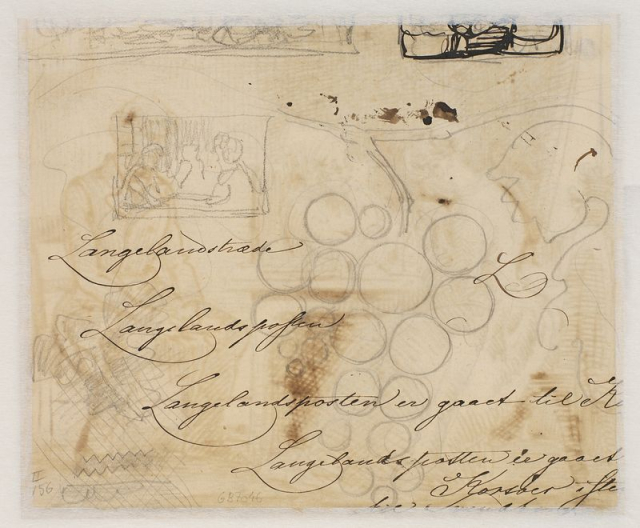 Langelandstræde
L
Langelandsposten
Langelandsposten er gaaet til K
Langelandsposten er gaaet
Korsør
II
156